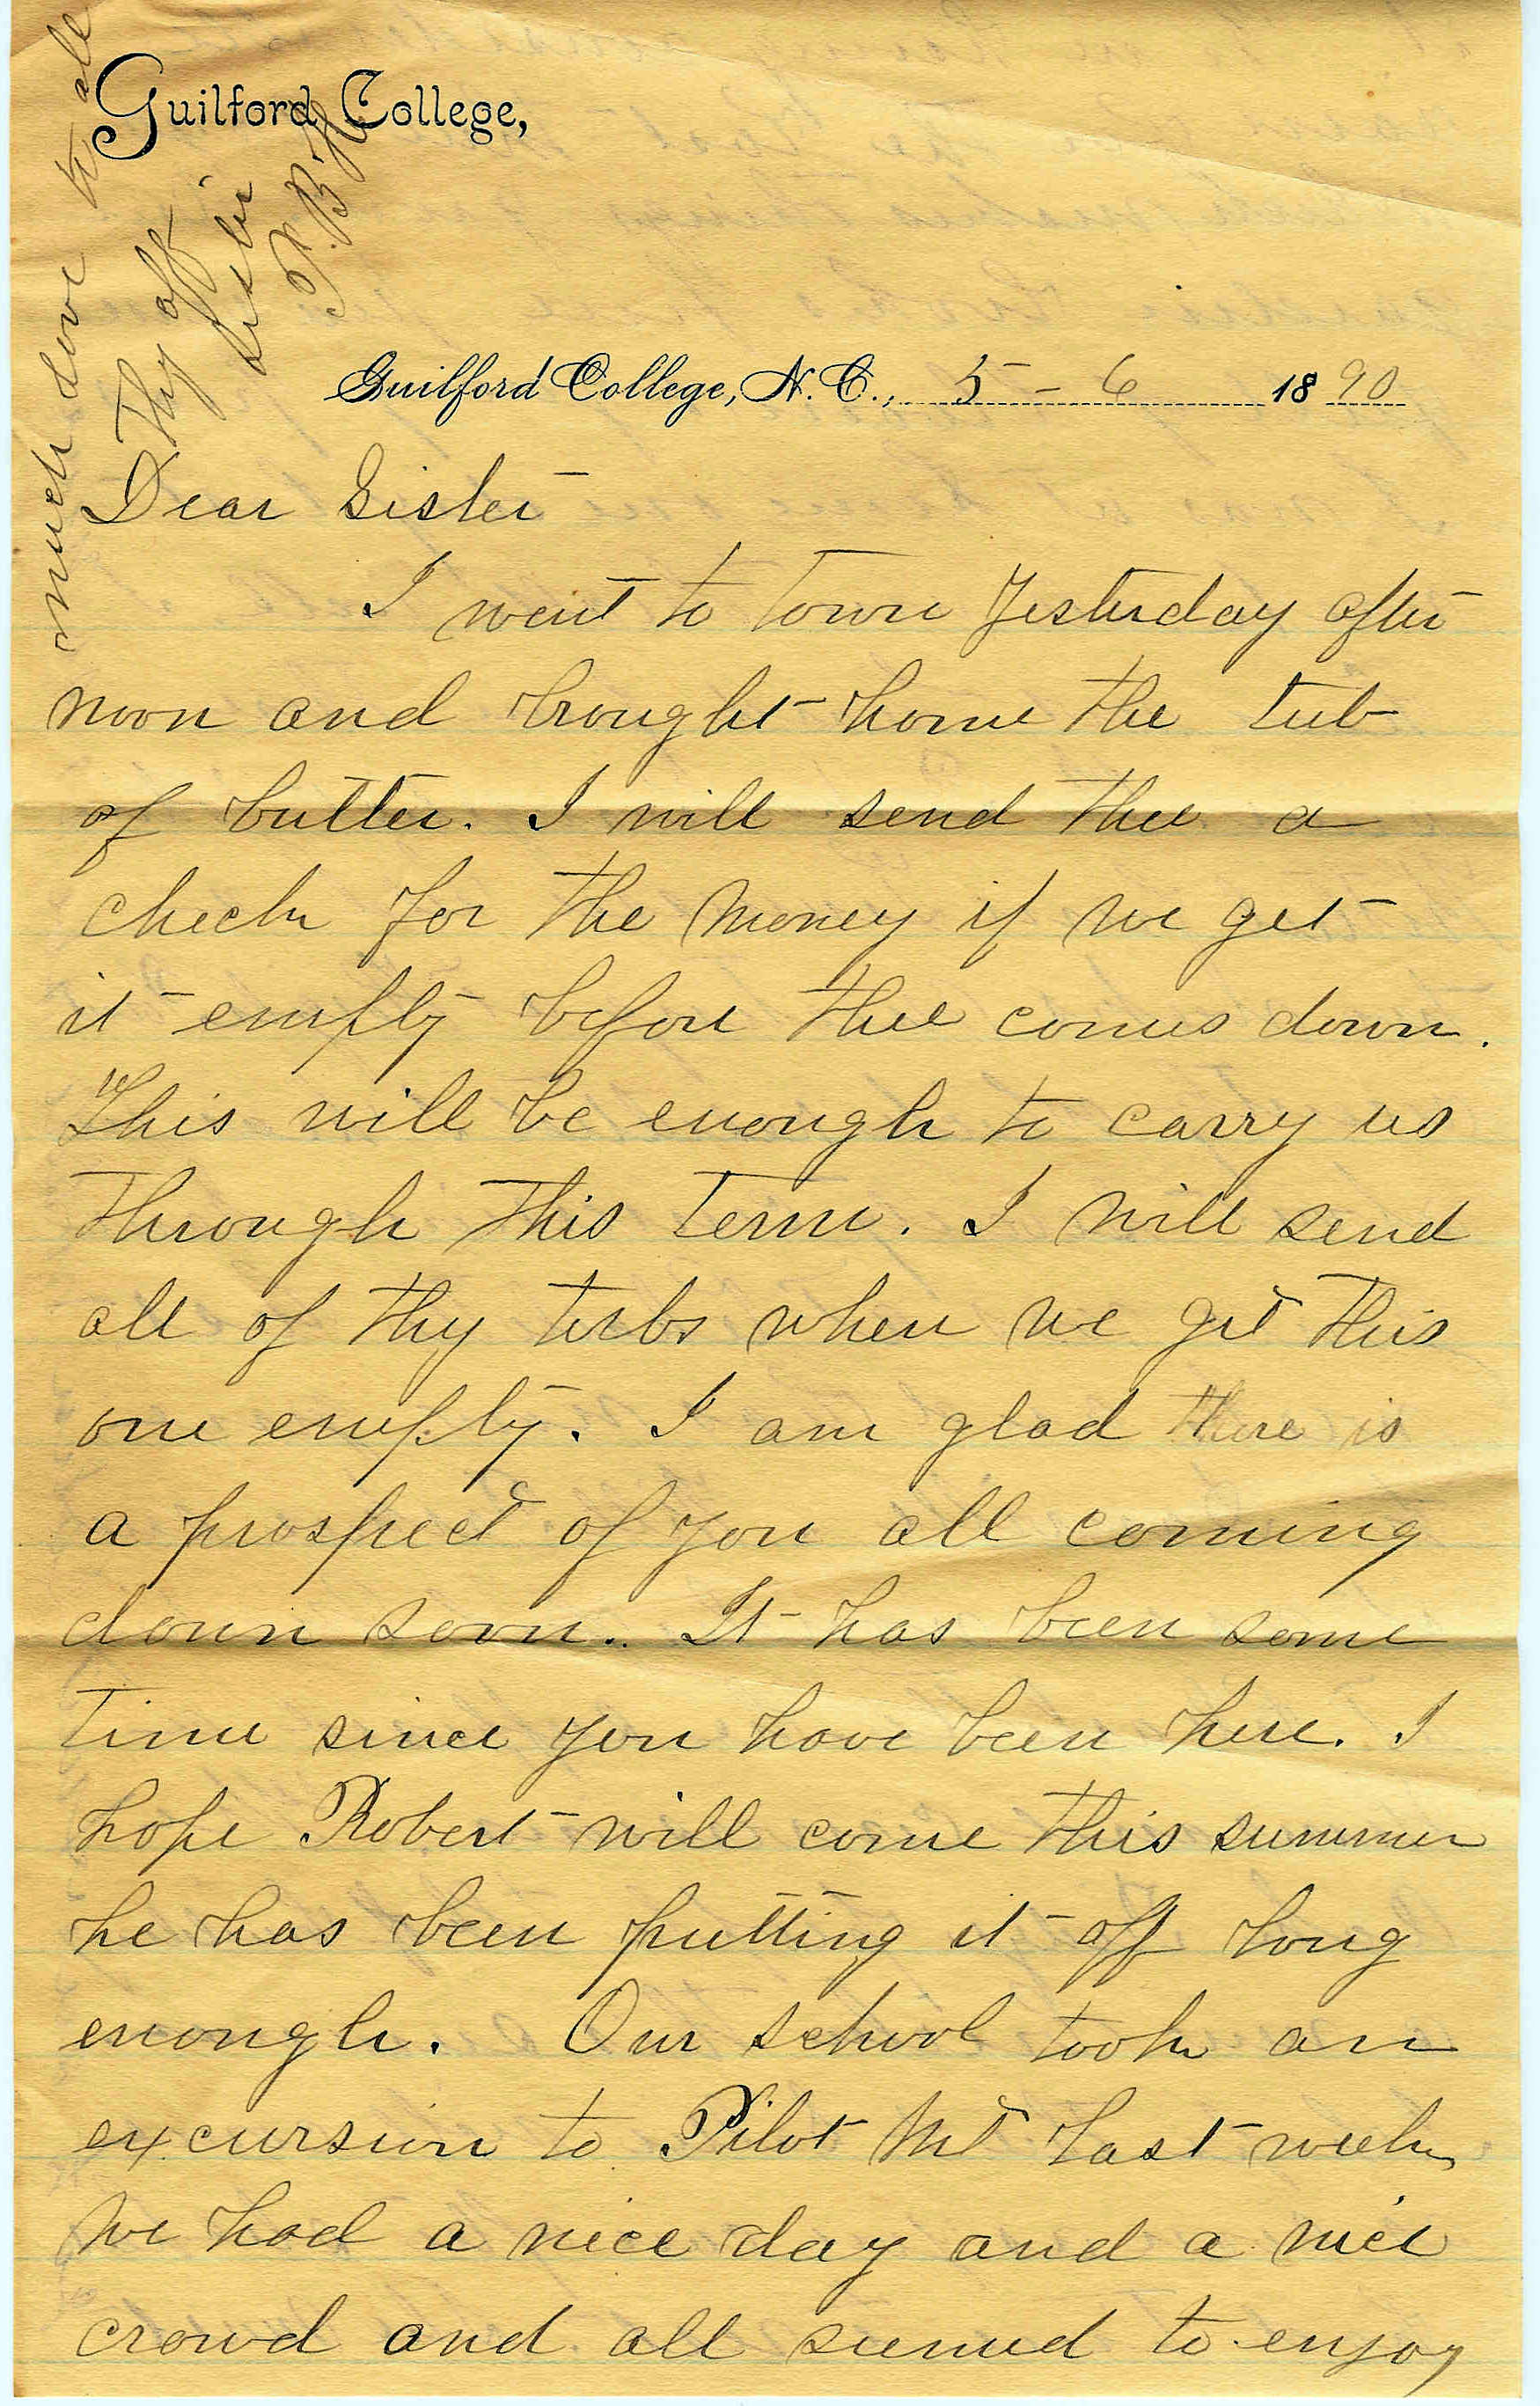 Guilford College,
Guilford College, N. C., 5 - 6 1890
Dear Sister
I went to town yesterday after
noon and brought home the tub
of butter. I will send thee a
check for the money if we get
it empty before thee comes down.
This will be enough to carry us
through this term. I will send
all of thy tubs when we get this
one empty. I am glad there is
a prospect of you all coming
down soon. It has been some
time since you have been here. I
hope Robert will come this summer
he has been putting it off long
enough. Our school took an
excursion to Pilot Mt last week,
we had a nice day and a nice
crowd and all seemed to enjoy
much love to all
Thy aff
sister
P.B.H.